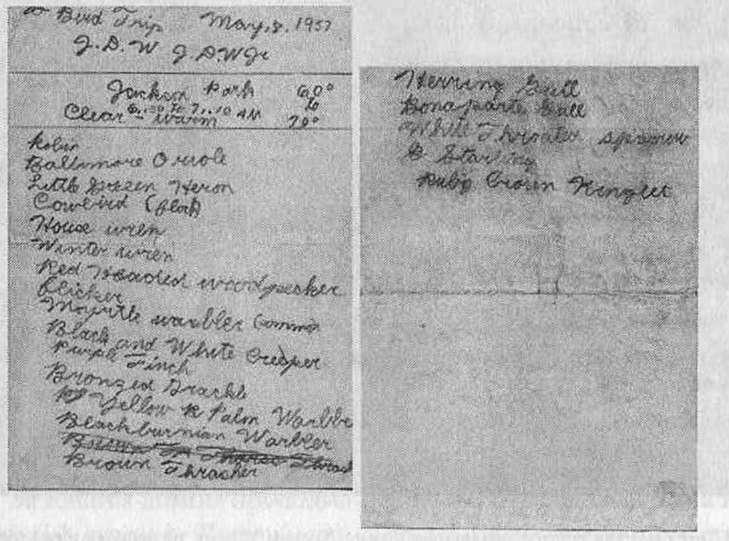 Bird Trip May, 8, 1937
J.D.W J.D.W Jr
Jackson Park 60°
6:30 to 7:10 AM to
Clear warm 70°
Robin
Baltimore Oriole
Little Green Heron
Cowbird (flock)
House wren
Winter wren
Red Headed woodpecker
flicker
Myrtle warbler Common
Black and White Creeper
Purple Finch
Bronzed Grackle
Yellow R Palm Warbler
Blackburnian Warbler
Brown Thrasher
Herring Gull
Bonaparte Gull
White Throated sparrow
Starling
Ruby Crown Kinglet